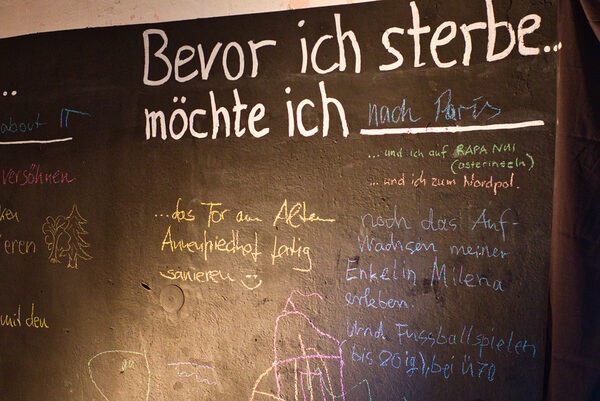 Bevor ich sterbe...
möchte ich nach Paris
...und ich auf RAPA NUI
(Osterinseln)
...und ich zum Nordpol.
...
about IT
versöhnen
ken
ieren
mit den
...das Tor am Alten
Annenfriedhof fertig
sanieren
noch das Auf-
wachsen meiner
Enkelin Milena
erleben.
und Fussballspielen
bis 80ig), bei Ü70